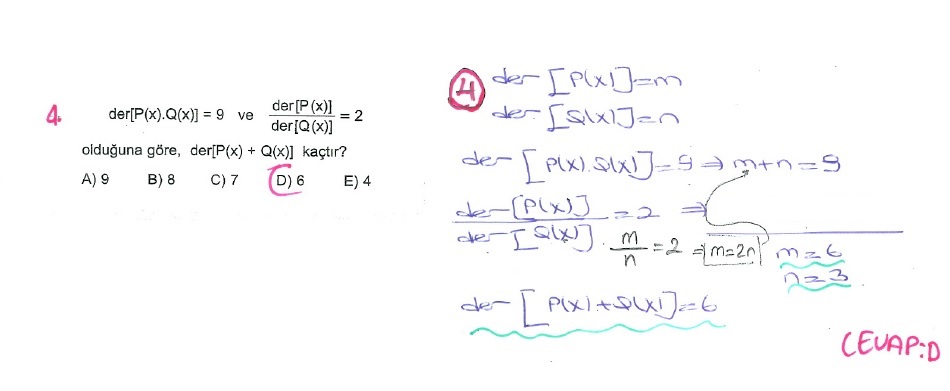 4. der[P(x).Q(x)] = 9 ve der[P(x)] / der[Q(x)] = 2
olduğuna göre, der[P(x) + Q(x)] kaçtır?
A) 9 B) 8 C) 7 D) 6 E) 4
4 der [P(x)]=m
der [Q(x)]=n
der [P(x).Q(x)]=9 ⇒ m+n=9
der [P(x)] / der [Q(x)] = 2 ⇒
m/n = 2 ⇒ m=2n m=6
n=3
der [P(x)+Q(x)]=6
CEVAP:D